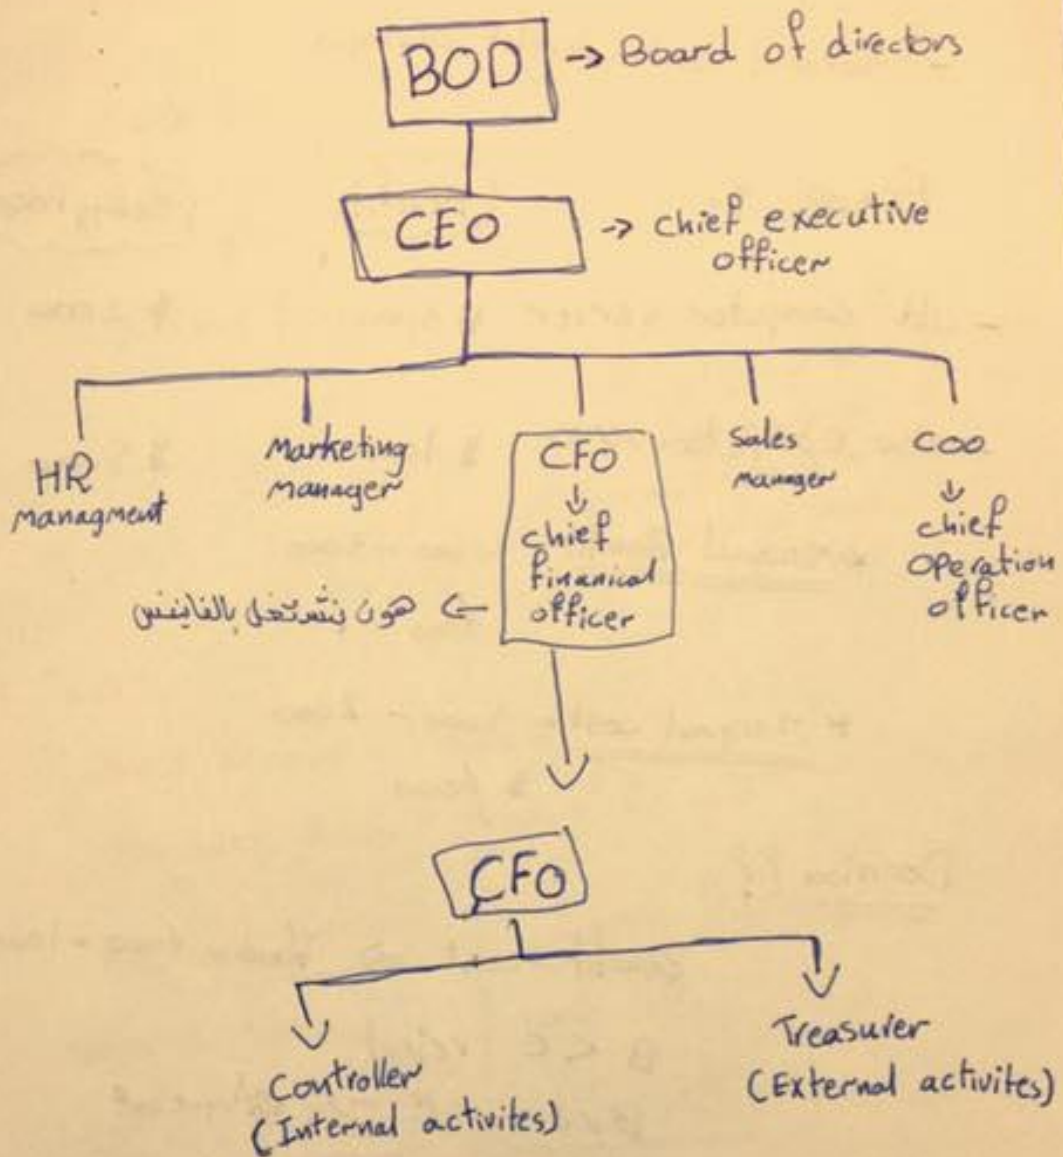 BOD -> Board of directors
CEO -> chief executive
officer
HR
managment
Marketing
manager
CFO
↓
chief
finanical
officer
Sales
manager
COO
↓
chief
operation
officer
هون بنشتغل بالفاينس
CFO
Controller
(Internal activites)
Treasurer
(External activites)